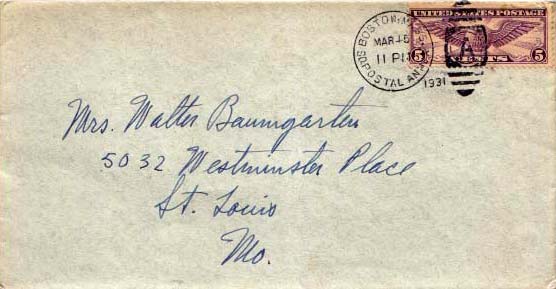 BOSTON, MASS.
MAR 15
11 PM
1931
SO. POSTAL ANNEX
A
UNITED STATES POSTAGE
5 5
Mrs. Walter Baumgarten
5032 Westminster Place
St. Louis
Mo.